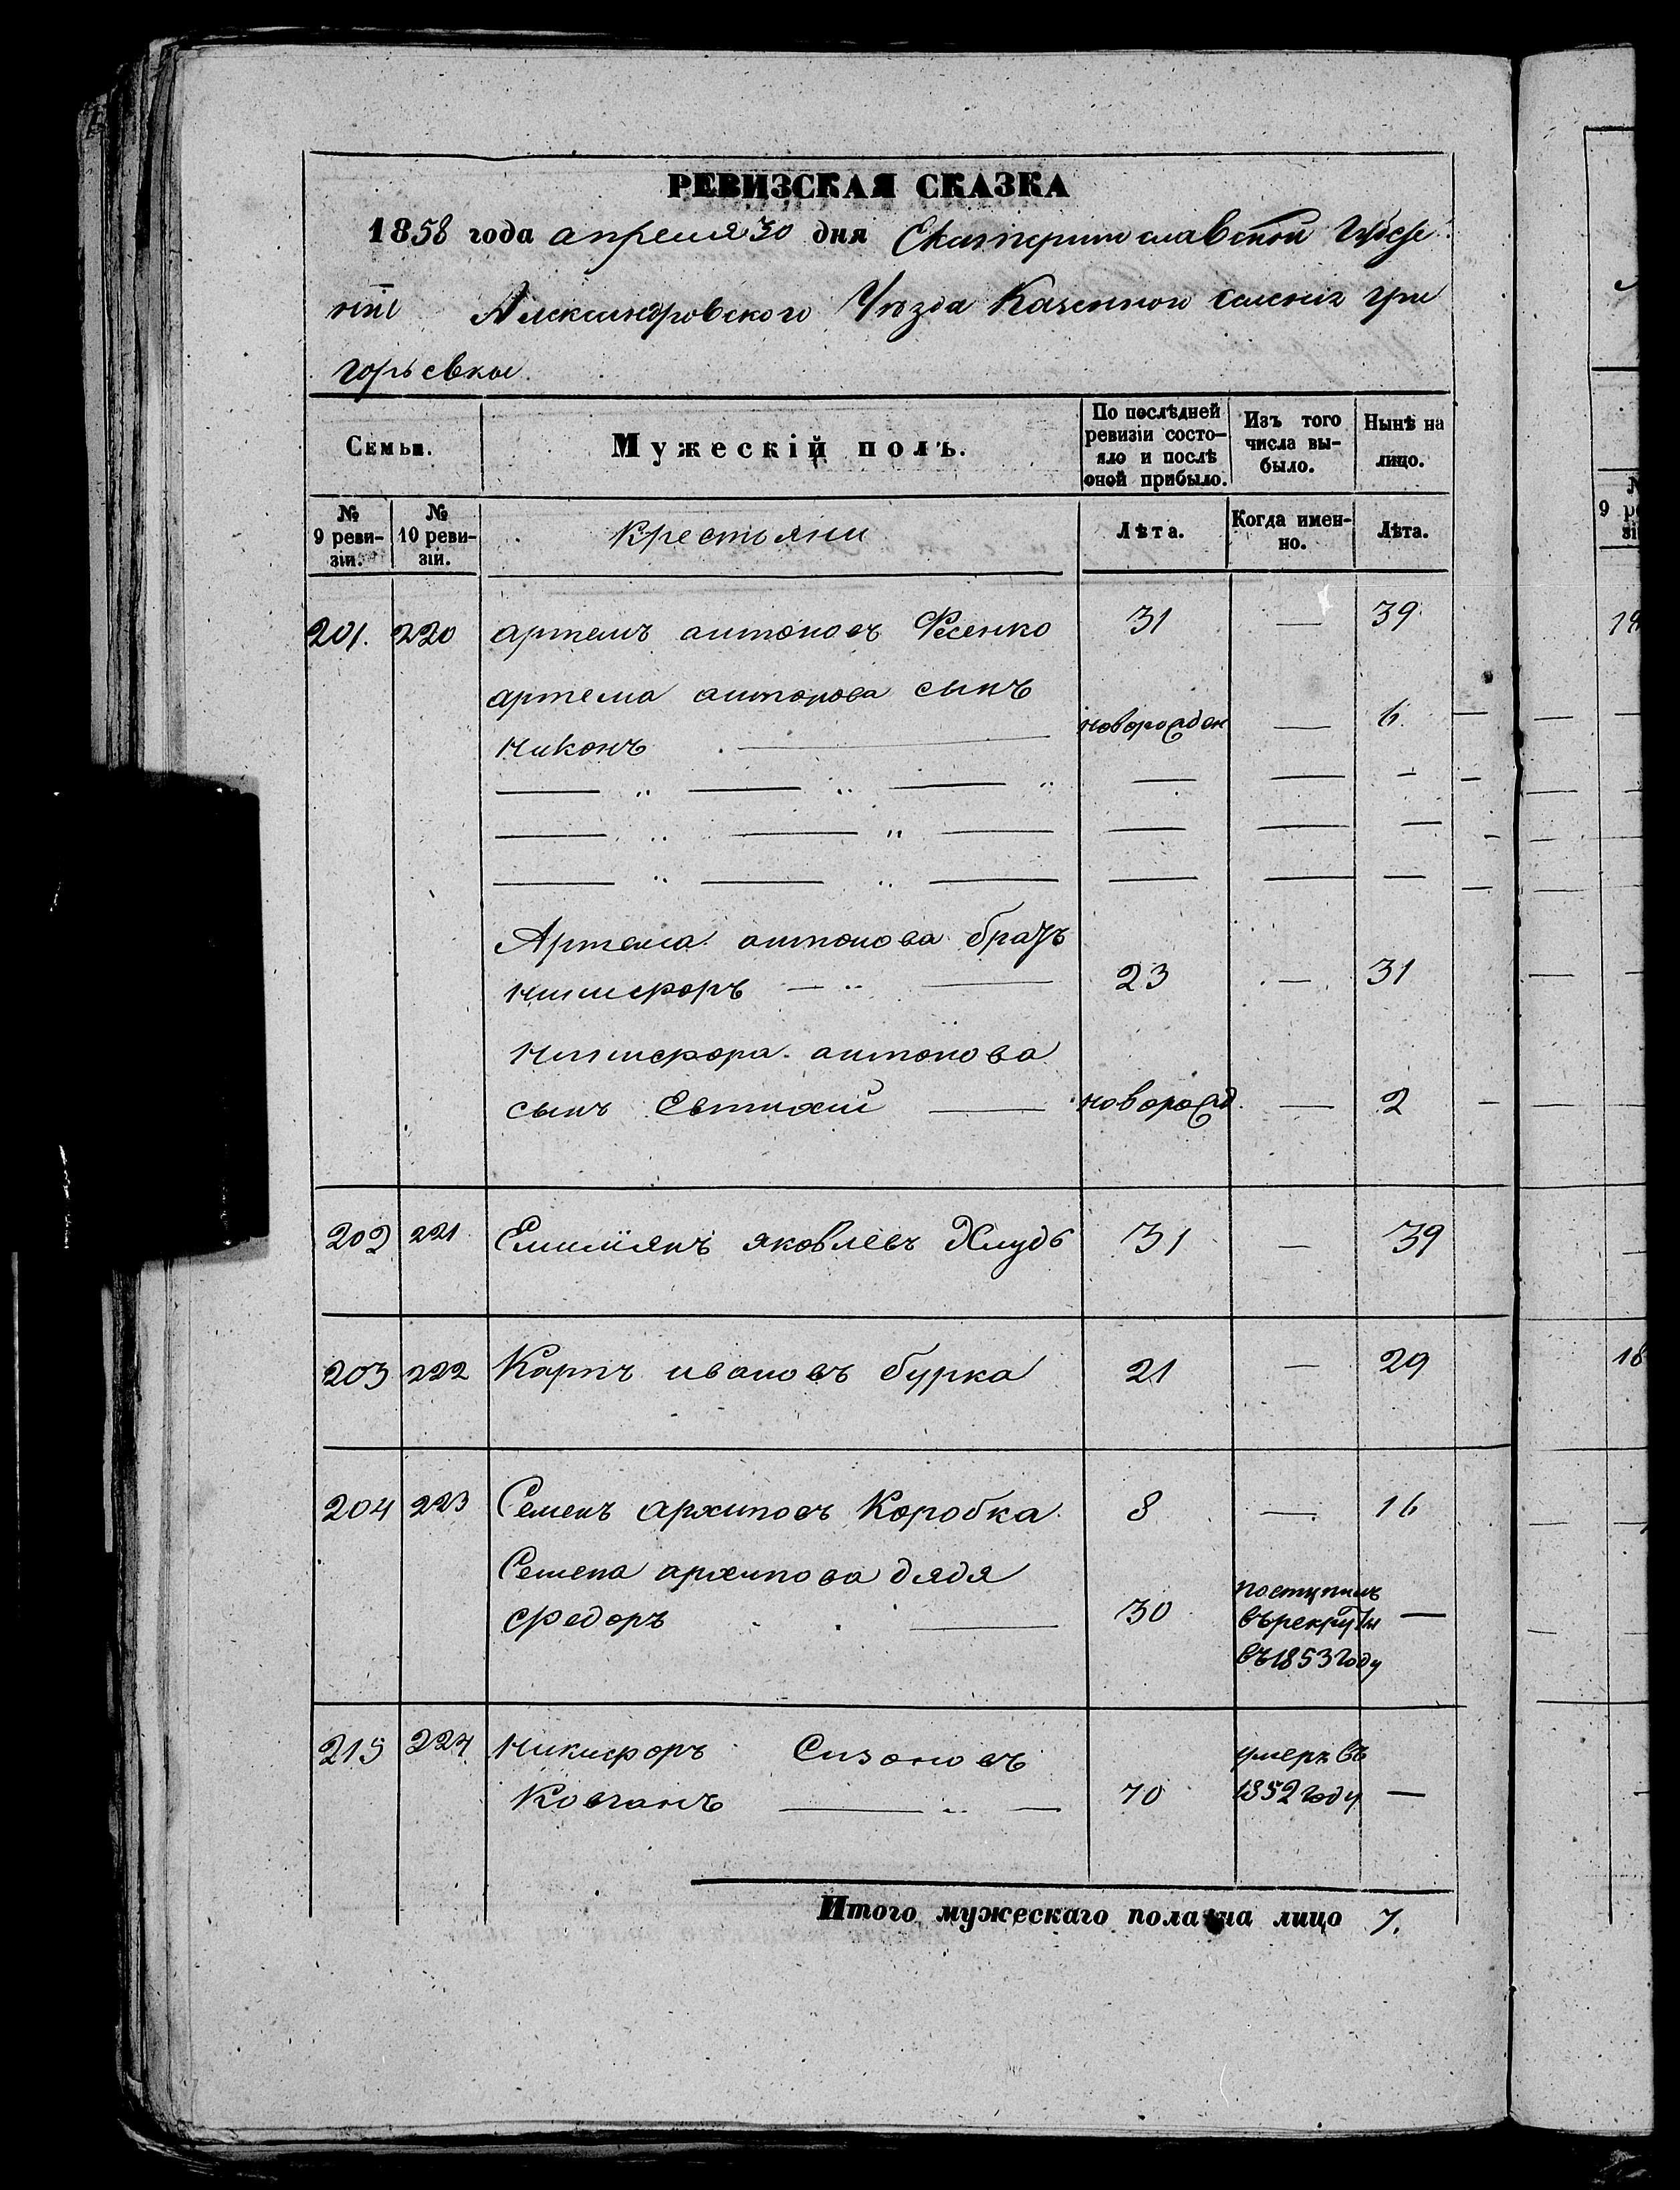 РЕВИЗСКАЯ СКАЗКА
1858 года апреля 30 дня Екатеринославской Губер
нiи Александровского Уезда Казенной селенiя Гри
горьевки
Семьи. Мужескiй полъ. По послѣдней ревизiи состо- яло и послѣ оной прибыло. Изъ того числа вы- было. Нынѣ на лицо.
№ 9 реви- зiи. № 10 реви- зiи. Крестьяни Лѣта. Когда имен- но. Лѣта.
201. 220 артемъ антоновъ Фесенко 31 — 39
артема антонова сынъ
Никонъ — новорожден — 6
Артема антонова братъ
Никифоръ — 23 — 31
Никифора антонова
сынъ Евтихiй — новорожд. — 2
202 221 Емилiянъ яковлевъ Хлудъ 31 — 39
203 222 Карпъ ивановъ бурка 21 — 29
204 223 Семенъ архиповъ Коробка 8 — 16
Семена архипова дядя
Федоръ — 30 поступилъ въ рекруты въ 1853 году —
215 224 Никифоръ Сизоновъ
Ковганъ — 70 умеръ въ 1852 году —
Итого мужескаго пола на лицо 7.